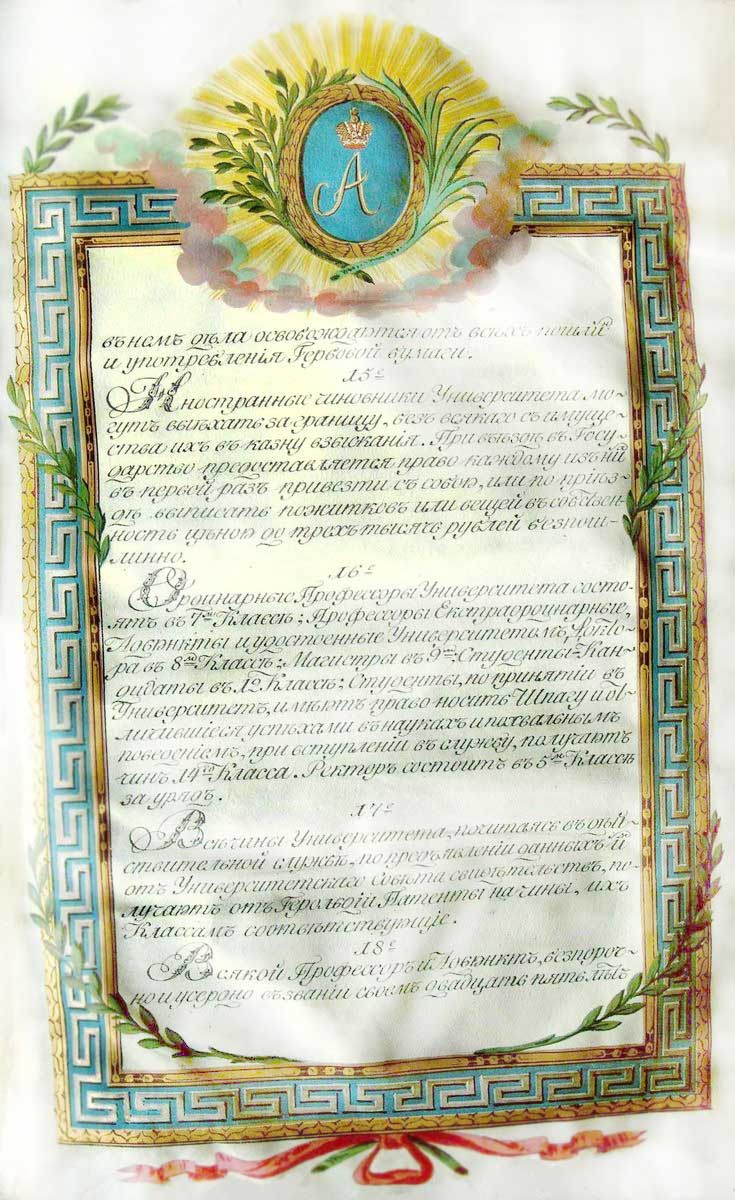 А
въ немъ дѣла освобождаются отъ всѣхъ пошлинъ
и употребленія Гербовой бумаги.
15е
Иностранные чиновники Университета мо-
гутъ выѣхать за границу, безъ всякаго съ имуще-
ства ихъ въ казну взысканія. При въѣздѣ въ Госу-
дарство предоставляется право каждому изъ нихъ
въ первой разъ привезти съ собою, или по приѣз-
дѣ выписать пожитковъ или вещей въ собствен-
ность цѣною до трехъ тысячь рублей безпош-
линно.
16е
Ординарные Профессоры Университета состо-
ятъ въ 7мъ Классѣ; Профессоры Екстраординарные,
Адъюнкты и удостоенные Университетомъ Докто-
ра въ 8мъ Классѣ; Магистры въ 9мъ; Студенты-Кан-
дидаты въ 12 Классѣ; Студенты, по принятіи въ
Университетъ, имѣютъ право носить Шпагу и от-
личившіеся успѣхами въ наукахъ и похвальнымъ
поведеніемъ, при вступленіи въ службу, получаютъ
чинъ 14го Класса. Ректоръ состоитъ въ 5мъ Классѣ
за урядъ.
17е
Всѣ чины Университета, почитаясь въ дѣй-
ствительной службѣ, по предъявленіи данныхъ й
отъ Университетскаго Совѣта свидѣтельствъ, по-
лучаютъ отъ Герольдіи Патенты на чины, ихъ
Классамъ соотвѣтствующіе.
18е
Всякой Профессоръ и Адъюнктъ, безпороч-
но и усердно въ званіи своемъ двадцать пять лѣтъ